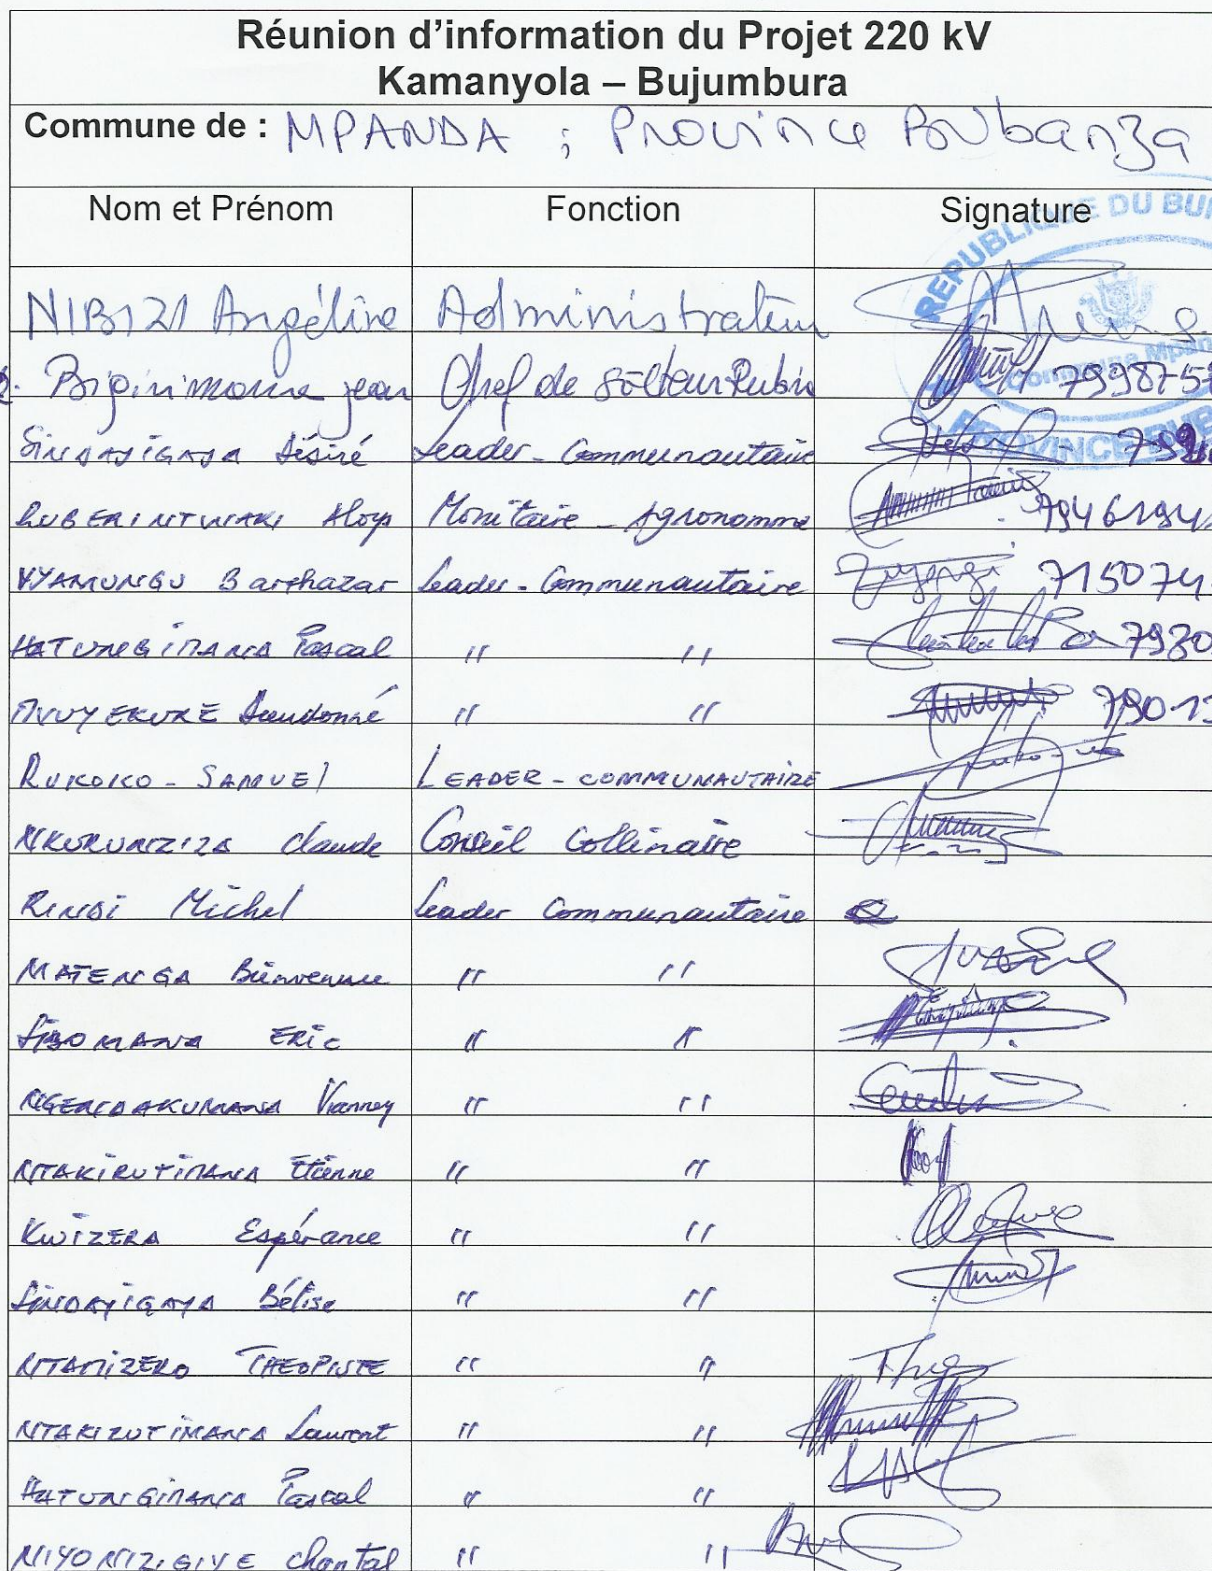 Réunion d'information du Projet 220 kV
Kamanyola – Bujumbura
Commune de : MPANDA ; Province Bubanza
Nom et Prénom Fonction Signature
REPUBLIQUE DU BU
NIBIZI Angéline Administrateur
2. Bigirimana jean Chef de secteur Rubira 799875
Commune Mpan
SINDAYIGAYA Désiré Leader - Communautaire
PROVINCE BUB
RUBERINTWARI Aloys Monitaire - Agronomme 7946194
VYAMUNGU Barthazar Leader - Communautaire 715074
HATUNGIMANA Pascal " " 7930
MVUYEKURE Dieudonné " " 79013
RUKOKO - SAMUEL LEADER - COMMUNAUTAIRE
NKURUNZIZA Claude Conseil Collinaire
RINDI Michel Leader Communautaire
MATENGA Bienvenue " "
SIBOMANA ERIC " "
NGENDAKUMANA Vianney " "
NTAKIRUTIMANA Etienne " "
KWIZERA Espérance " "
SINDAYIGAYA Bélise " "
NTAMIZERO THEOPISTE " " Theo
NTAKIZUTIMANA Laurent " "
HATUNGIMANA Pascal " "
NIYONIZIGIYE Chantal " "